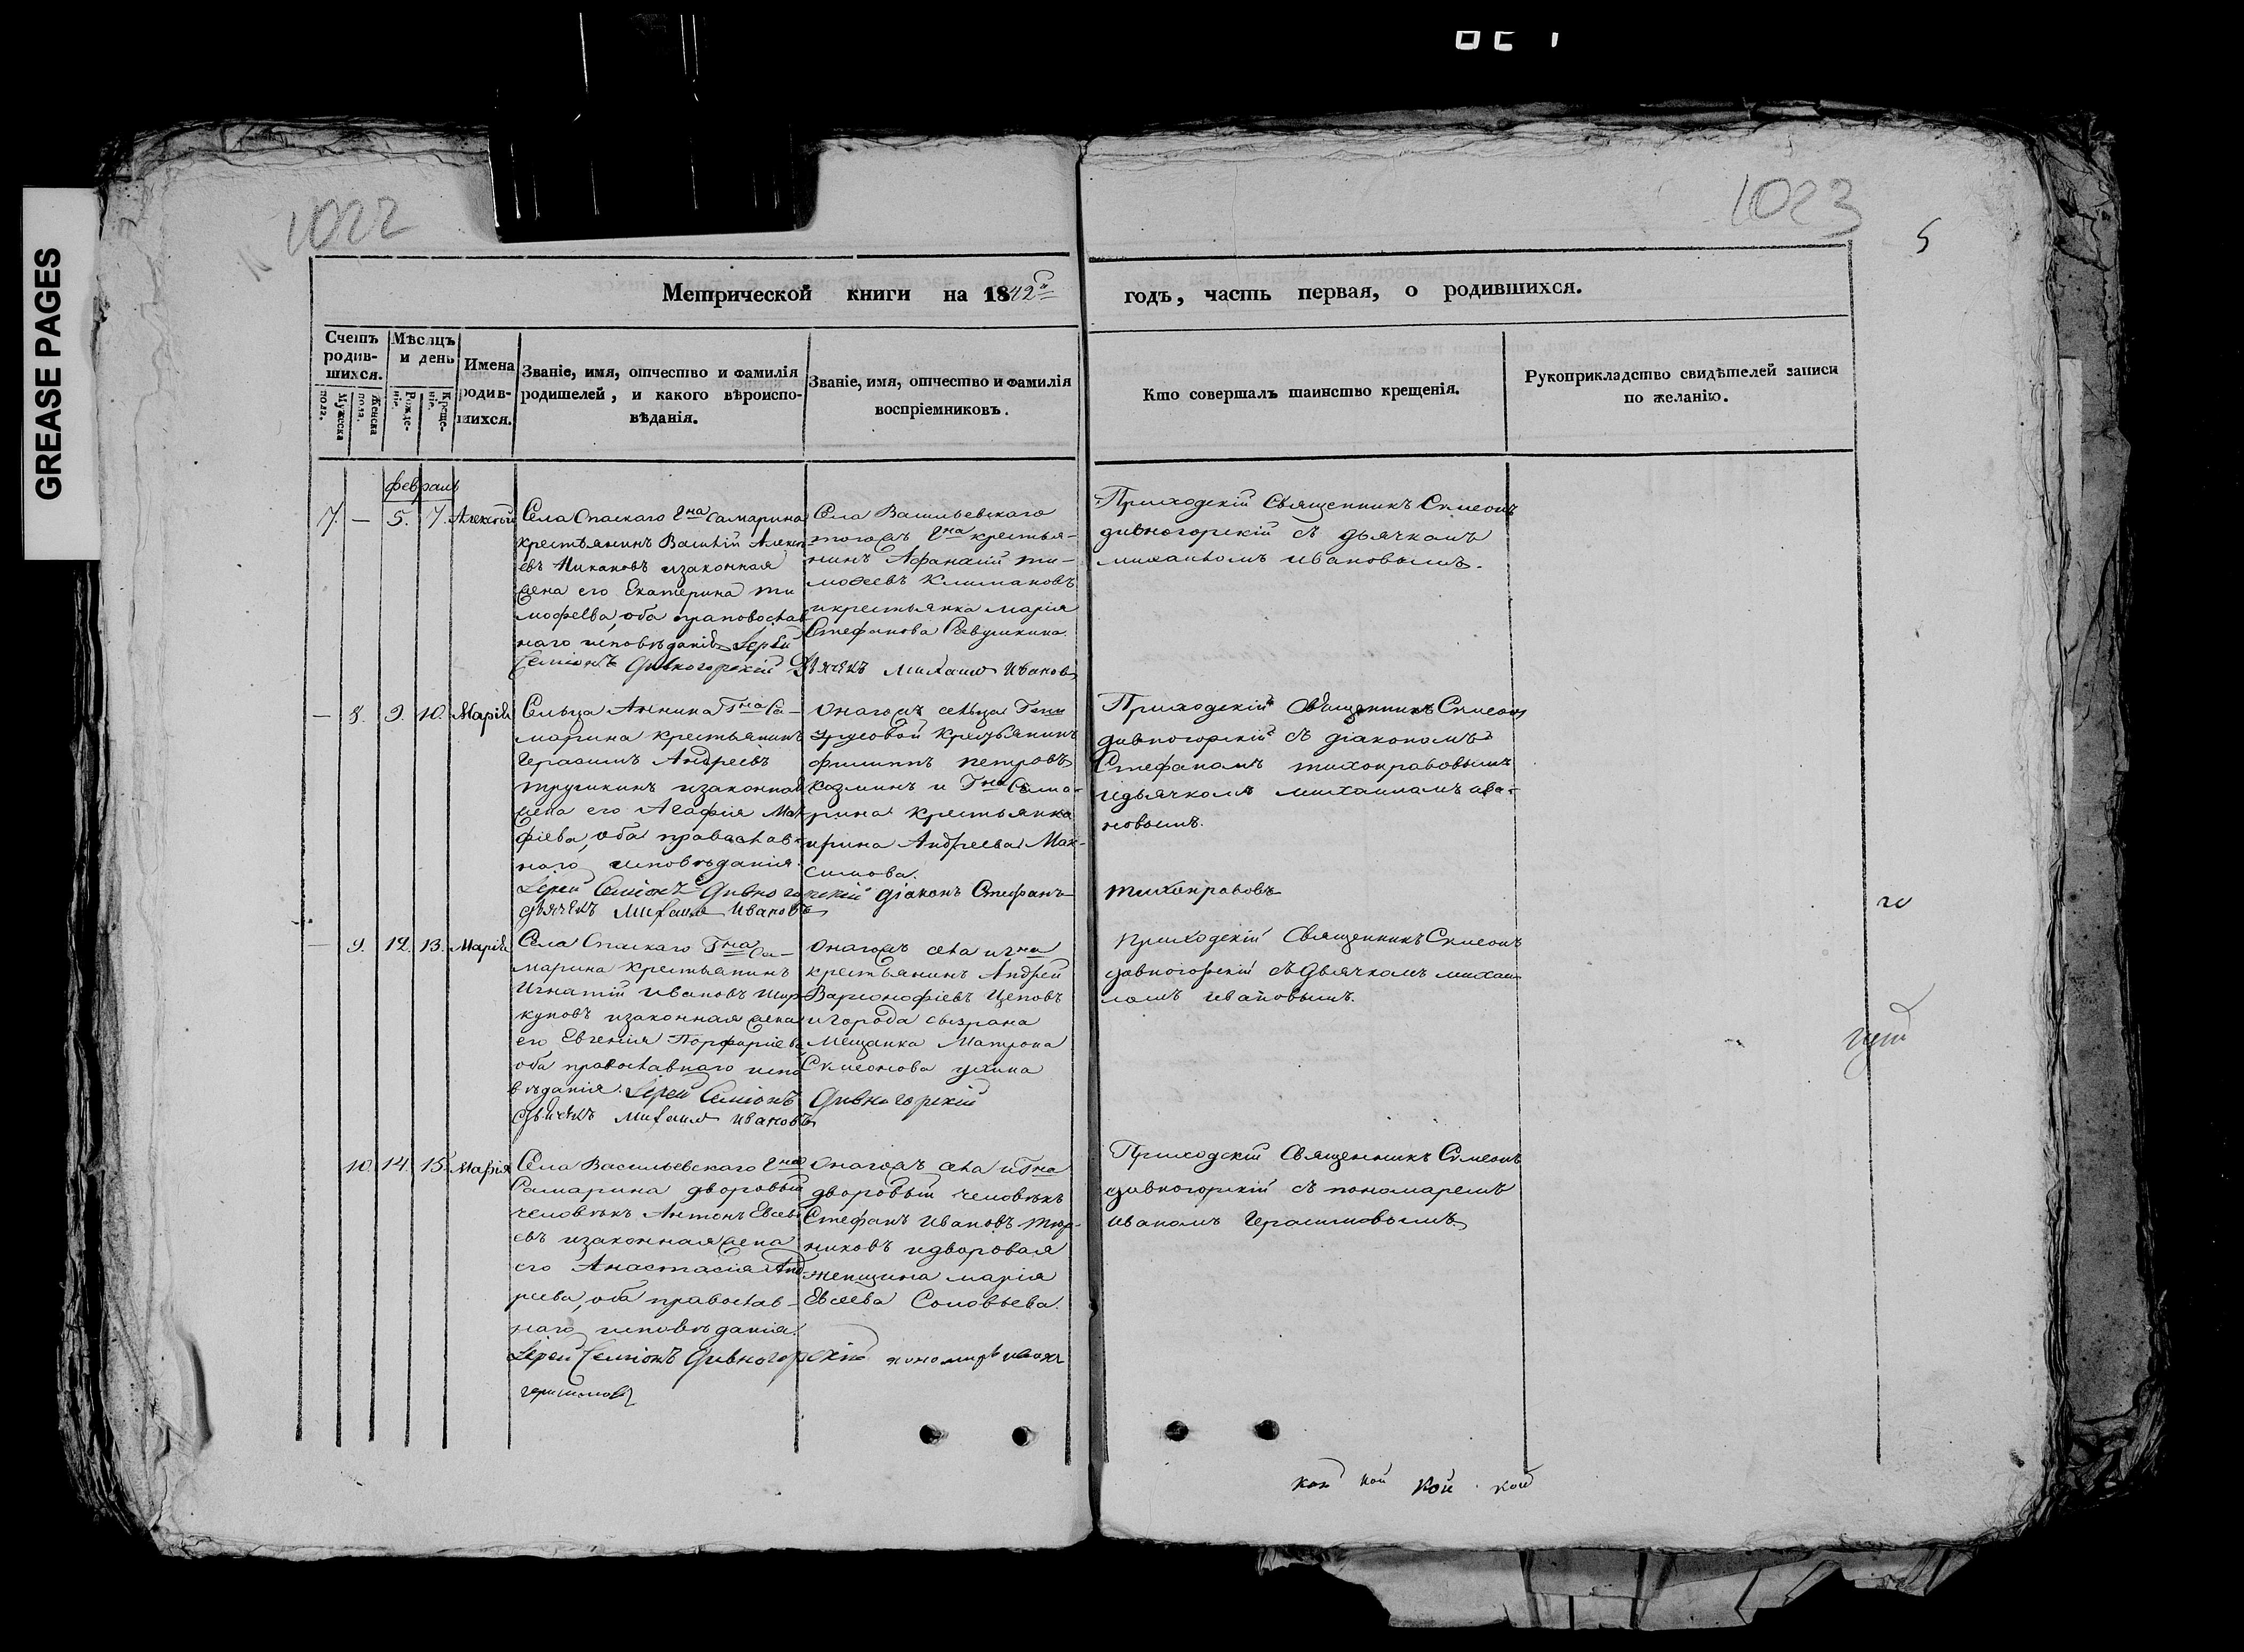 GREASE PAGES
1022
1023
5
Метрической книги на 1842й
годъ, часть первая, о родившихся.
Счетъ родив-шихся.
Мужеска пола.
Женска пола.
Мѣсяцъ и день
Рожде-нія.
Креще-нія.
Имена родив-шихся.
Званіе, имя, отчество и фамилія родителей, и какого вѣроиспо-вѣданія.
Званіе, имя, отчество и фамилія воспріемниковъ.
Кто совершалъ таинство крещенія.
Рукоприкладство свидѣтелей записи по желанію.
февраль
7. — 5. 7. Алексѣй
Села Спаскаго Гна Самарина
крестьянинъ Василій Алексѣ
евъ изаконная
жена его Екатерина Ти
мофеева, оба православ
наго исповѣданія Іерей
Семіонъ Дивногорскій Дьячекъ Михаилъ Ивановъ
Села Васильевскаго
тогожъ Гна крестья-
нинъ Афанасій Ти-
мофеевъ Климановъ
икрестьянка марія
Стефанова
Приходскій Священникъ Симеонъ
дивногорскій съ дьячкомъ
михаиломъ ивановымъ.
— 8. 9. 10. Марія
Сельца Аннина Гна Са-
марина крестьянинъ
Герасимъ Андреевъ
изаконная
жена его Агафія Мат
фіева, оба православ-
наго исповѣданія.
Іерей Семіонъ Дивногорскій діаконъ Стефанъ
Тихонравовъ
дьячекъ Михаилъ Ивановъ
Оногожъ сельца Гжи
крестьянинъ
филиппъ петровъ
козминъ и Гна Сама-
рина крестьянка
ирина Андреева Мак-
симова.
Приходскій Священникъ Симеонъ
дивногорскій съ діакономъ
Стефаномъ тихонравовымъ
идьячкомъ михаиломъ ива-
новымъ.
— 9. 12. 13. Марія
Села Спаскаго Гна Са-
марина крестьянинъ
Игнатій ивановъ Шир-
куновъ изаконная жена
его Евгенія Порфиріева
оба православнаго испо
вѣданія. Іерей Семіонъ Дивногорскій
дьячекъ Михаилъ Ивановъ
Оногожъ села игна
крестьянинъ Андрей
Варфоломѣевъ Цеповъ
игорода сызрана
Мещанка Матрона
Симеонова
Приходскій Священникъ Симеонъ
дивногорскій съ дьячкомъ михаи
ломъ ивановымъ.
10. 14. 15. Марія
Села Васильевскаго Гна
Самарина дворовый
человѣкъ Антонъ Евсеѣ
евъ изаконная жена
его Анастасія Анд
реева, оба православ-
наго исповѣданія.
Іерей Семіонъ Дивногорскій пономарь иванъ
герасимовъ
Оногожъ села иГна
дворовый человѣкъ
Стефанъ Ивановъ Тюр-
никовъ идворовая
женщина марія
Евсеева Соловьева.
Приходскій Священникъ Симеонъ
дивногорскій съ пономаремъ
иваномъ герасимовымъ.
кой кой кой кой